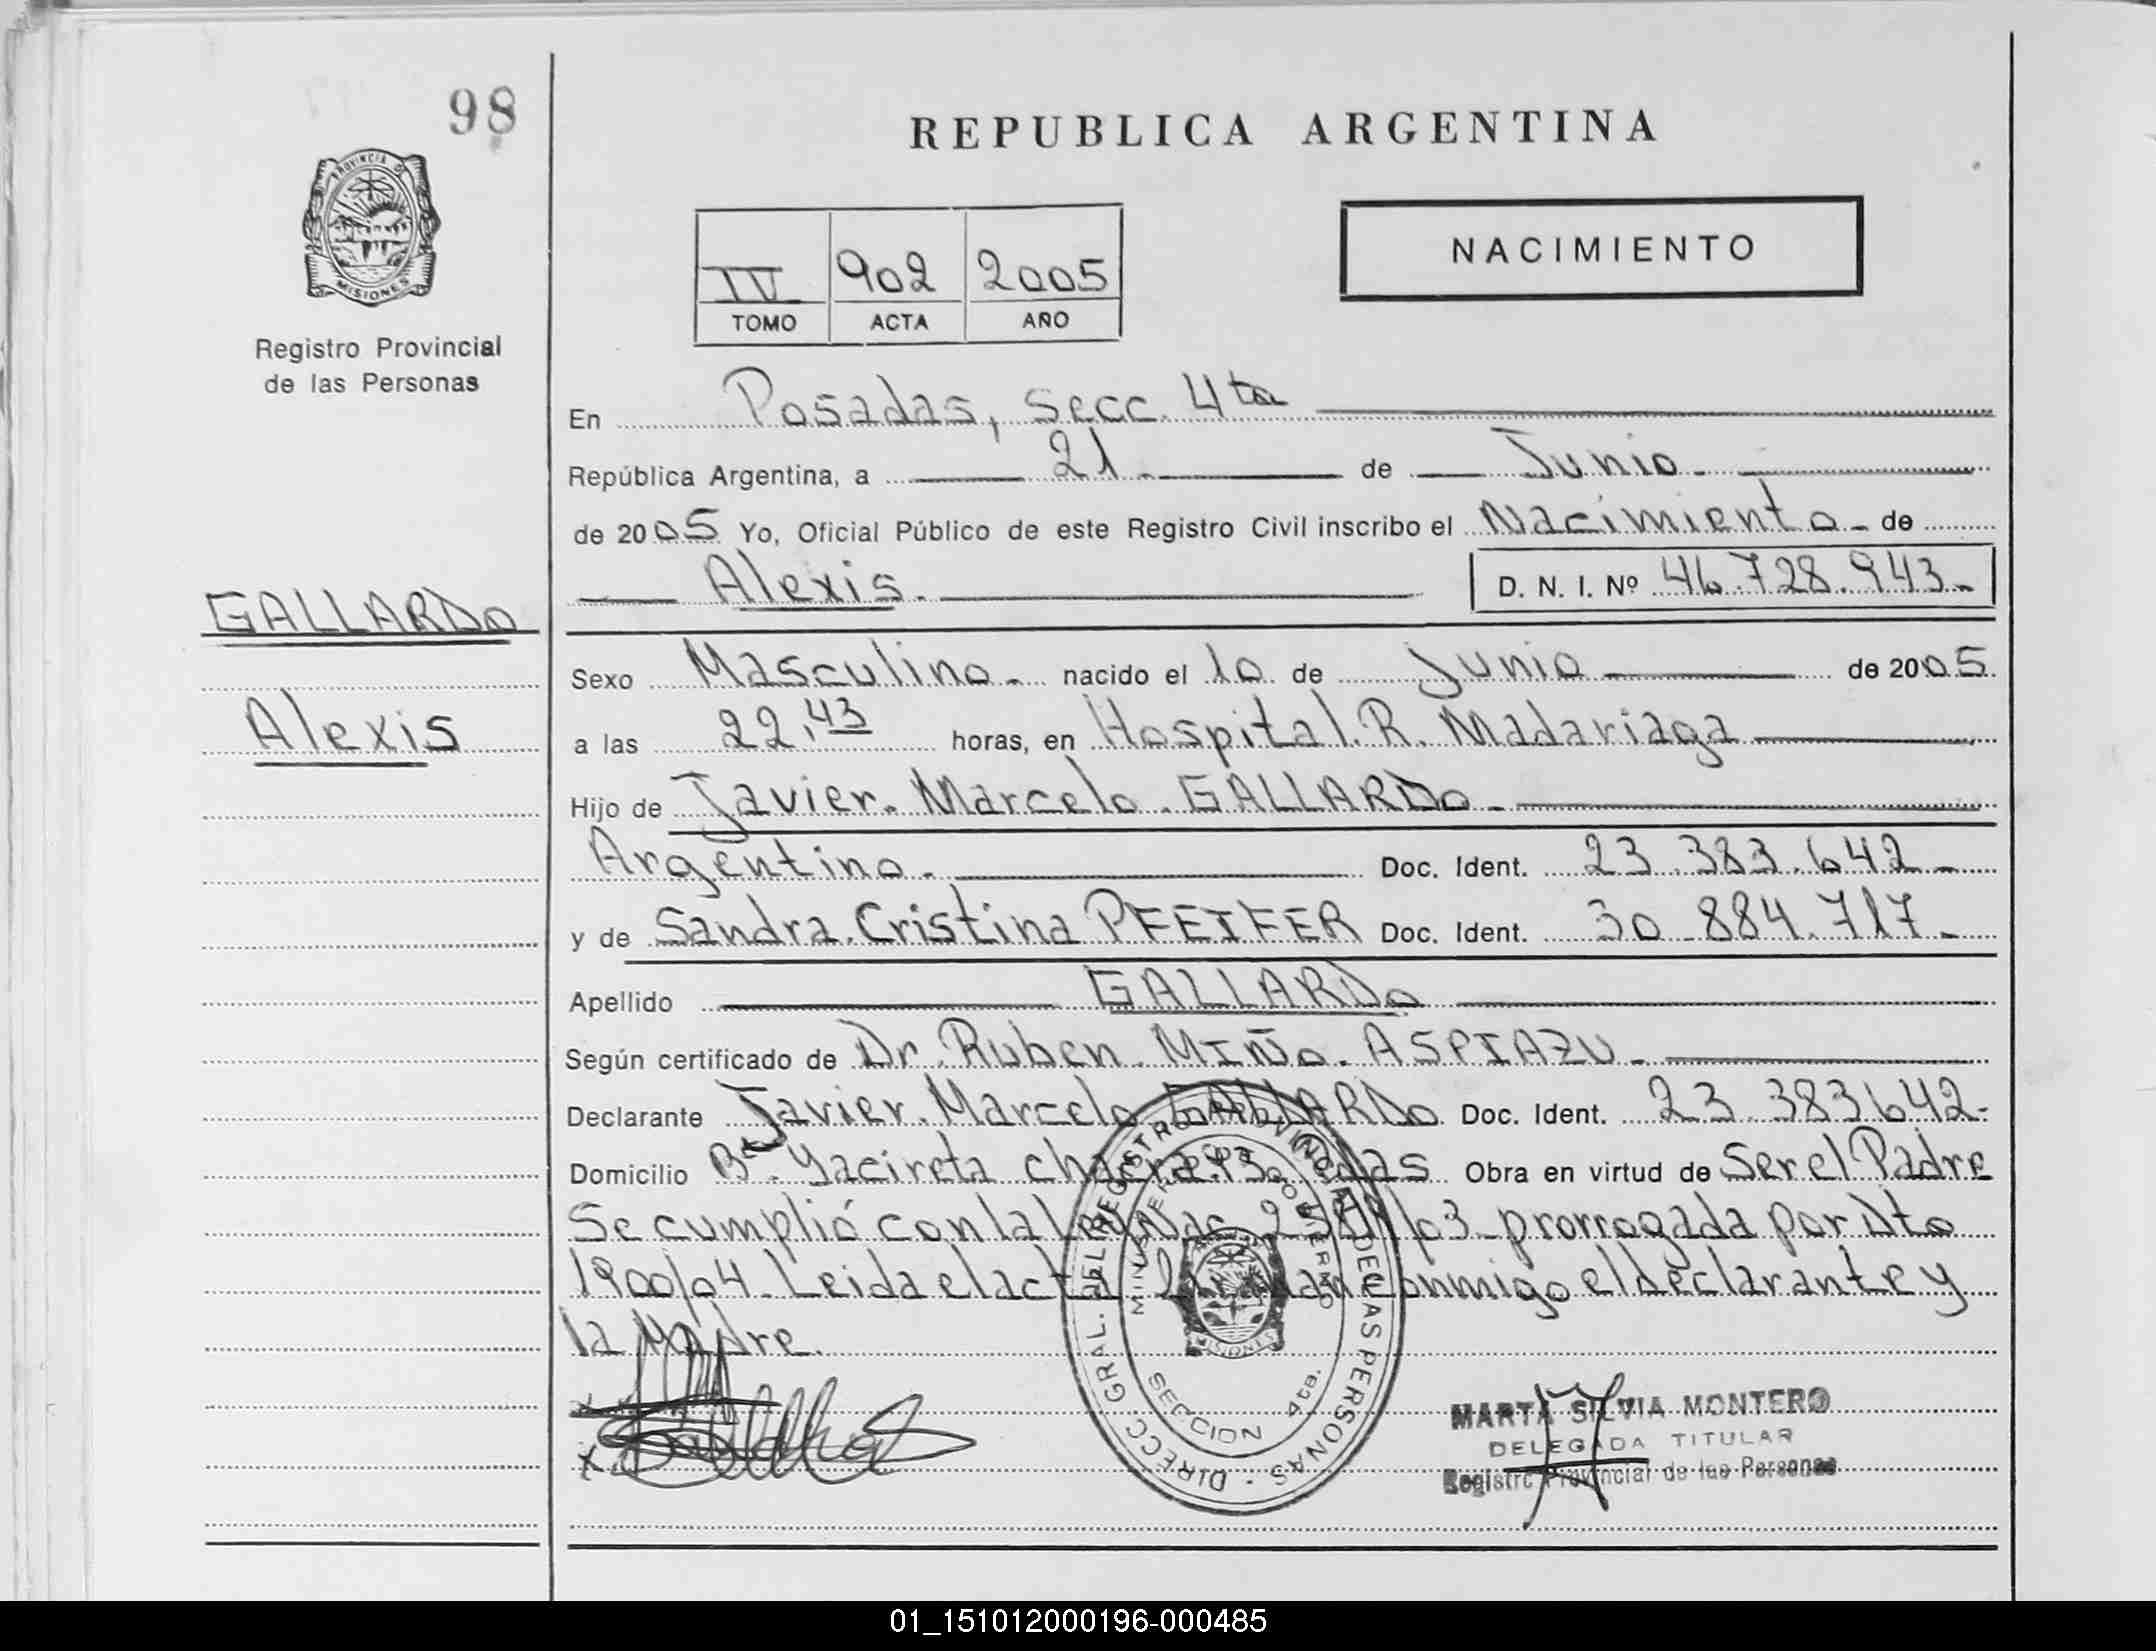 98
REPUBLICA ARGENTINA
PROVINCIA DE
MISIONES
Registro Provincial
de las Personas
NACIMIENTO
IV 902 2005
TOMO ACTA AÑO
En Posadas, Secc. 4ta
República Argentina, a 21 de Junio
de 2005 Yo, Oficial Público de este Registro Civil inscribo el Nacimiento de
Alexis. D. N. I. Nº 46.728.943
GALLARDO
Alexis
Sexo Masculino nacido el 10 de Junio de 2005
a las 22,43 horas, en Hospital R. Madariaga
Hijo de Javier Marcelo GALLARDO
Argentino Doc. Ident. 23.383.642
y de Sandra Cristina PFEIFER Doc. Ident. 30 884.717
Apellido GALLARDO
Según certificado de Dr. Ruben MIÑO ASPIAZU
Declarante Javier Marcelo GALLARDO Doc. Ident. 23.383642
Domicilio Bº Yacireta chacra Obra en virtud de Ser el Padre
Se cumplió con la Ley Nac. prorrogada por Dto
1900/04. Leida el acta conmigo el declarante y
la Madre.
DIRECC GRAL. DEL REGISTRO PROVINCIAL DE LAS PERSONAS
MINISTERIO DE GOBIERNO
MISIONES
SECCION 4ta.
MARTA SILVIA MONTERO
DELEGADA TITULAR
Registro Provincial de las Personas
01_151012000196-000485